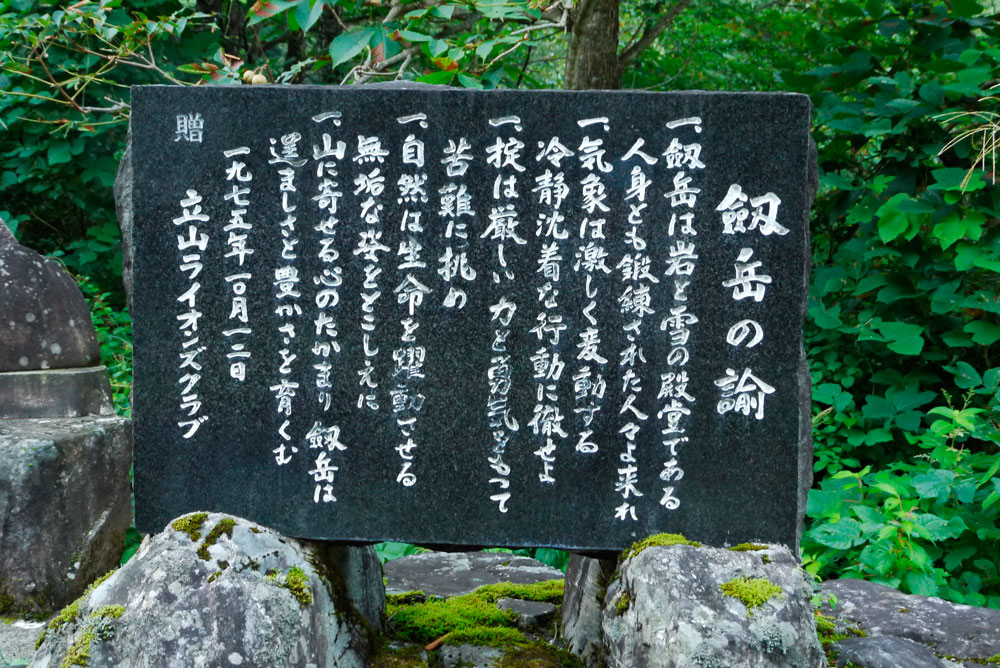 劔岳の諭
一、劔岳は岩と雪の殿堂である
人身とも鍛練された人々よ来れ
一、気象は激しく変動する
冷静沈着な行動に徹せよ
一、掟は厳しい 力と勇気をもって
苦難に挑め
一、自然は生命を躍動させる
無垢な姿をとこしえに
一、山に寄せる心のたかまり 劔岳は
逞ましさと豊かさを育くむ
一九七五年一〇月一二日
立山ライオンズクラブ
贈